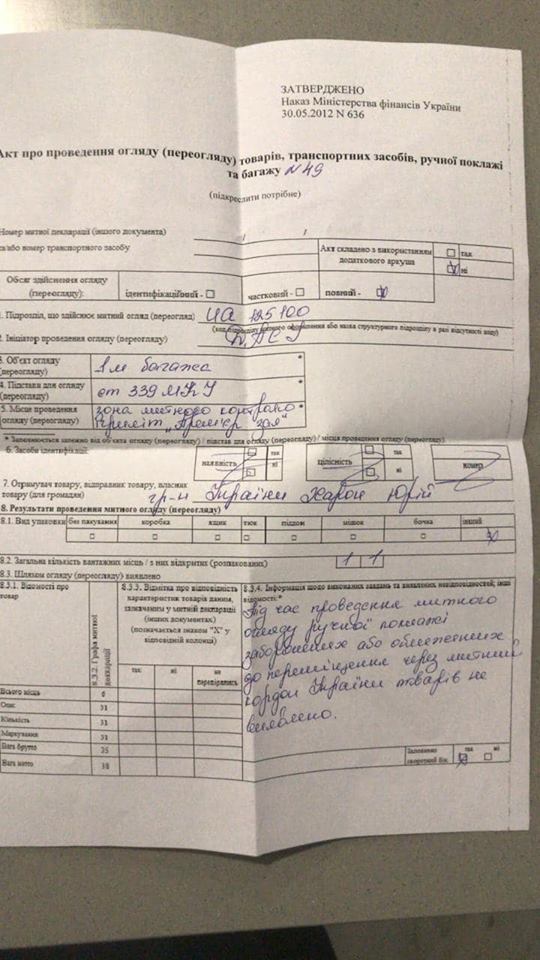 ЗАТВЕРДЖЕНО
Наказ Міністерства фінансів України
30.05.2012 N 636
Акт про проведення огляду (переогляду) товарів, транспортних засобів, ручної поклажі
та багажу N 49
(підкреслити потрібне)
Номер митної декларації (іншого документа)
та/або номер транспортного засобу
Акт складено з використанням
додаткового аркуша
так
ні
Обсяг здійснення огляду
(переогляду):
ідентифікаційний -
частковий -
повний -
1. Підрозділ, що здійснює митний огляд (переогляд) UA 125100
(код підрозділу митного оформлення або назва структурного підрозділу в разі відсутності коду)
2. Ініціатор проведення огляду (переогляду)
3. Об'єкт огляду
(переогляду)
1 м багажа *
4. Підстави для огляду
(переогляду)
ст 339 МКУ *
5. Місце проведення
огляду (переогляду)
зона митного контролю
"Прем'єр зал" *
* Заповнюється залежно від об'єкта огляду (переогляду) / підстав для огляду (переогляду) / місця проведення огляду (переогляду)
6. Засоби ідентифікації:
наявність
так
ні
цілісність
так
ні
номер
7. Отримувач товару, відправник товару, власник
товару (для громадян) гр-н України Харон Юрій
8. Результати проведення митного огляду (переогляду)
8.1. Вид упаковки
без пакування
коробка
ящик
тюк
піддон
мішок
бочка
інший
8.2. Загальна кількість вантажних місць / з них відкритих (розпакованих) 1 1
8.3. Шляхом огляду (переогляду) виявлено
8.3.1. Відомості про
товар
8.3.2. Графа митної
декларації
8.3.3. Відмітка про відповідність
характеристик товарів даним,
зазначеним у митній декларації
(інших документах)
(позначається знаком "X" у
відповідній колонці)
так
ні
не
перевірялись
8.3.4. Інформація щодо виконаних завдань та виявлених невідповідностей; інші
відомості*
Під час проведення митного
огляду ручної поклажі
заборонених або обмежених
до переміщення через митний
кордон України товарів не
виявлено.
Всього місць 6
Опис 31
Кількість 31
Маркування 31
Вага брутто 35
Вага нетто 38
Заповнено
зворотний бік
так
ні